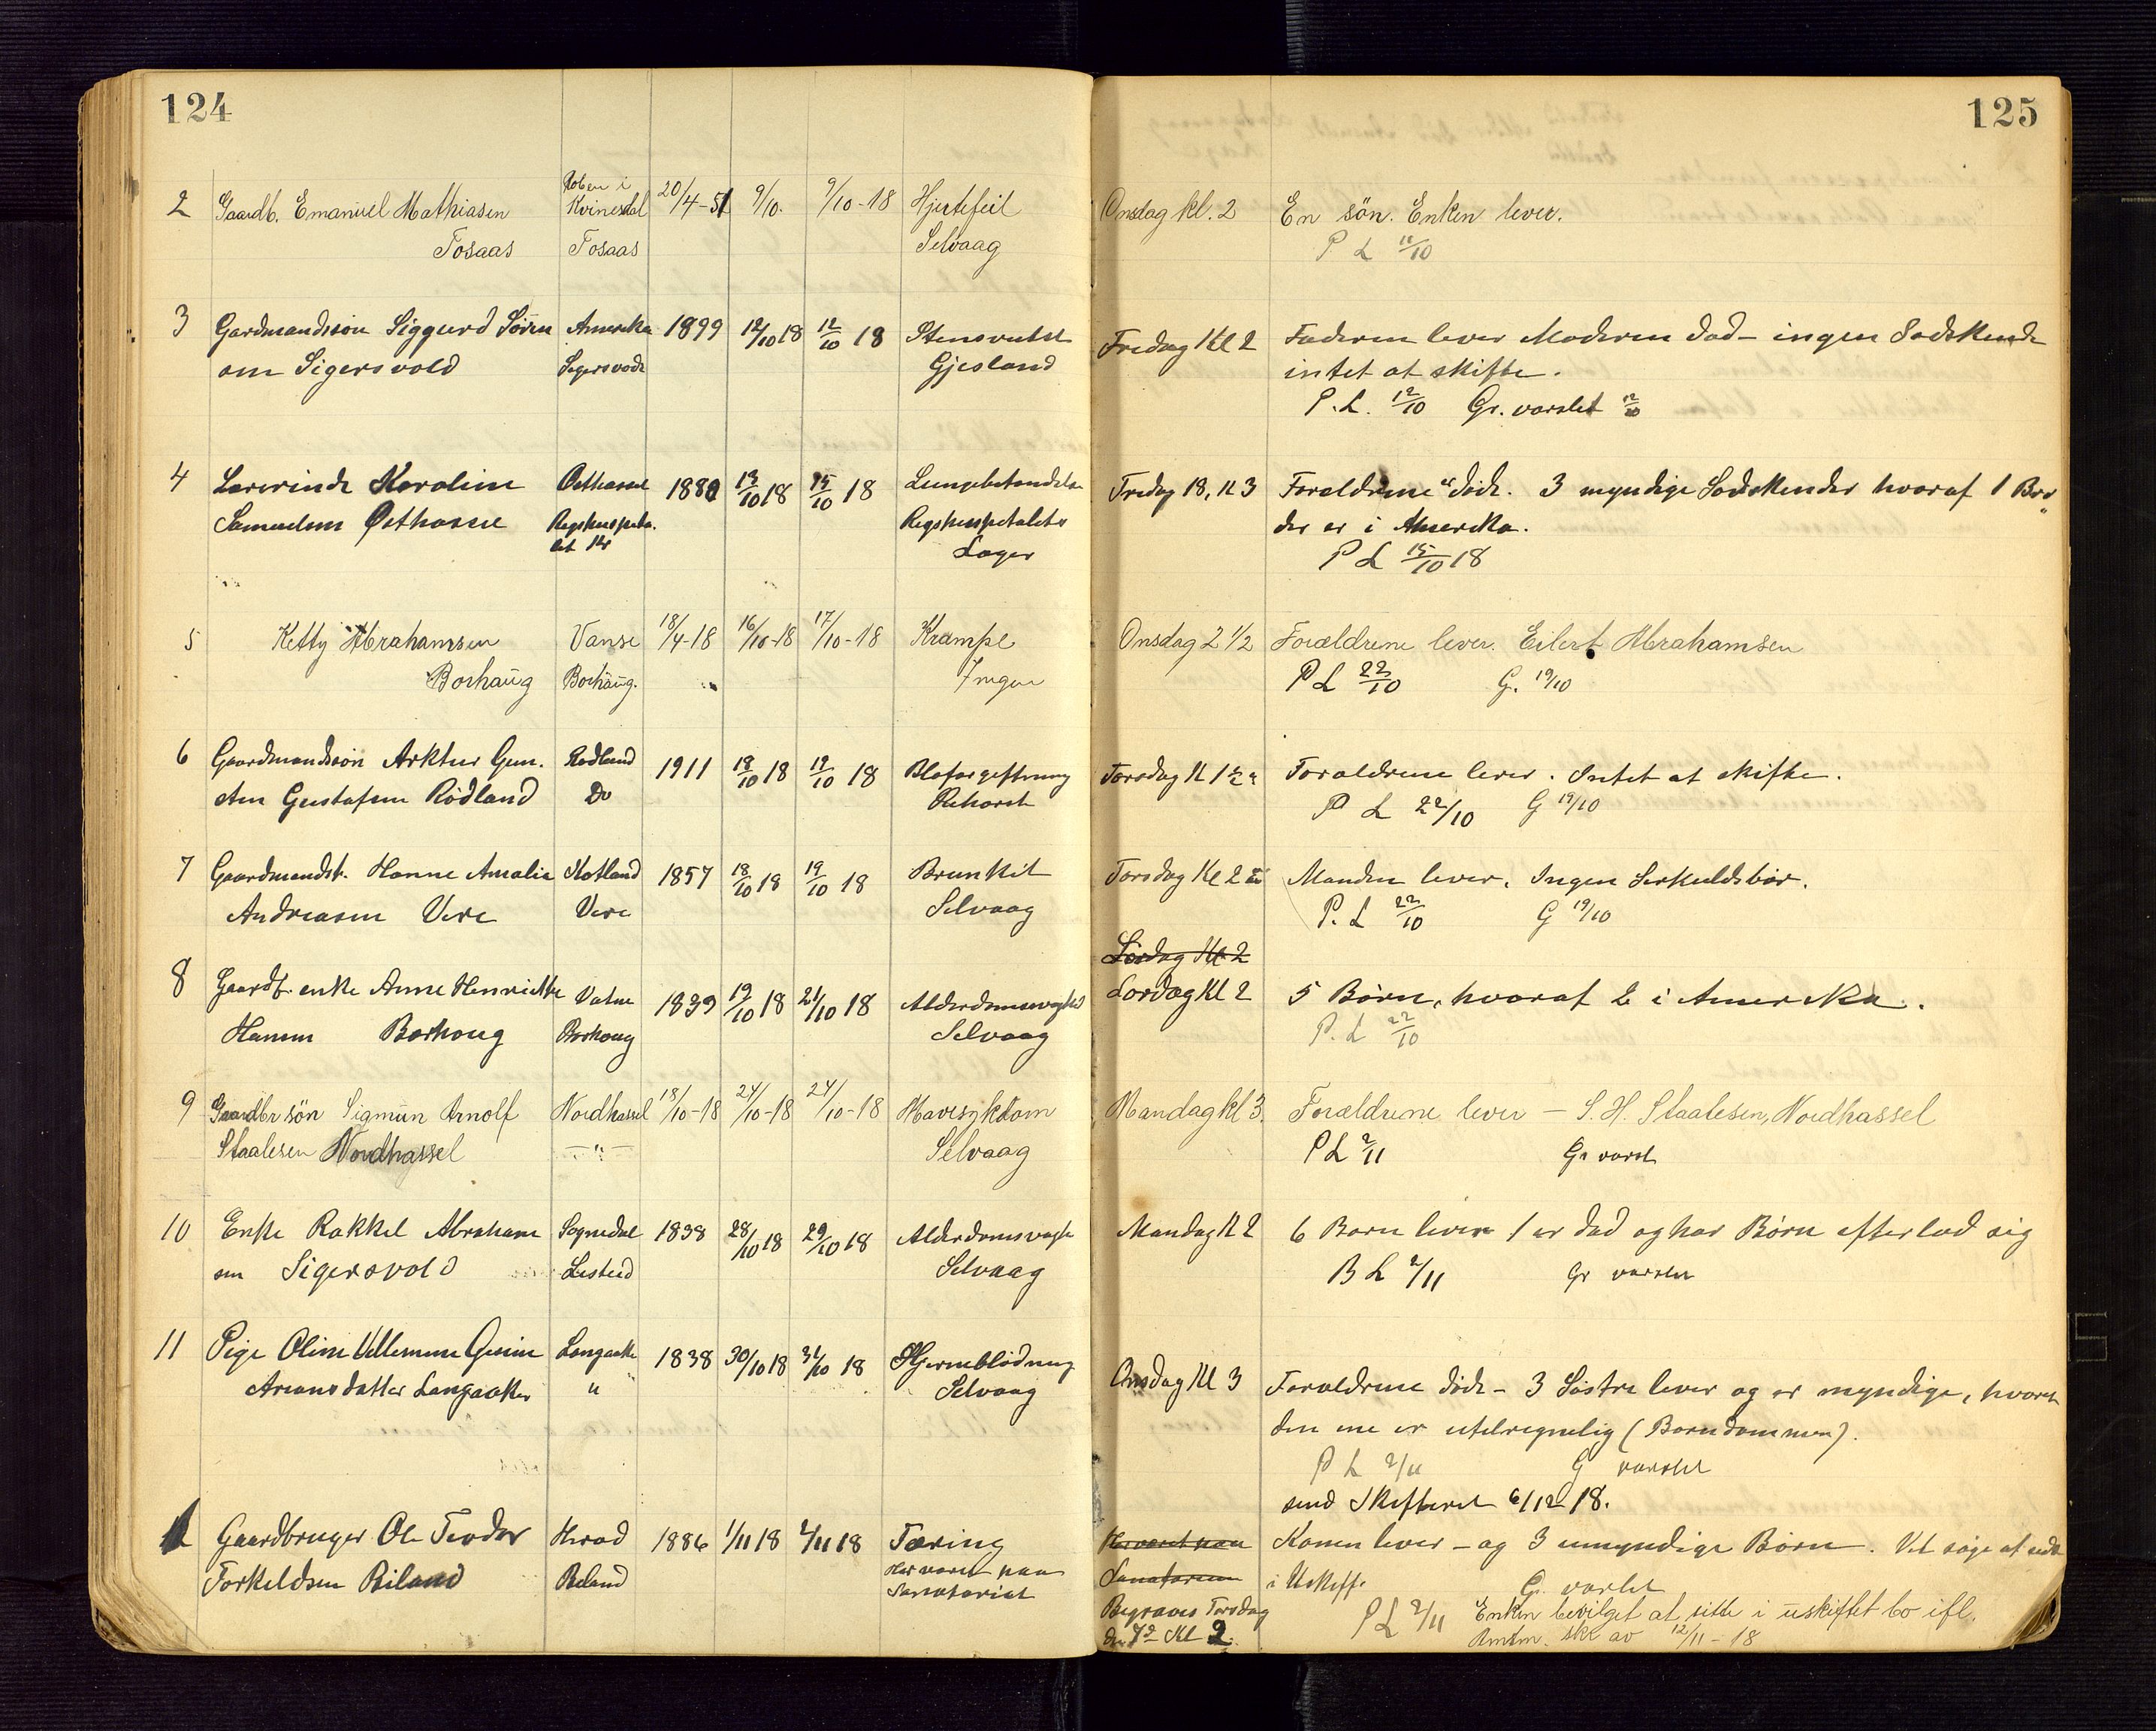 124
125
2 Gaardb. Emanuel Mathiasen Roben i Kvinesdal 20/4-51 9/10. 9/10-18 Hjertefeil Onsdag kl. 2 En søn. Enken lever.
Tosaas Tosaas Selvaag P L 11/10
3 Gardmandssøn Siggurd Søren Amerika 1899 12/10 18 12/10 18 Fredag Kl 2 Faderen lever Moderen død - ingen Sødskende
sen Sigersvold Sigersvold Gjesland intet at skifte.
P.L. 12/10 Gr. varslet 12/10
4 Lærerinde Karoline Østhassel 1880 13/10 18 15/10 18 Lungebetændelse Fredag 18, Kl 3 Forældrene er døde. 3 myndige Sødskender hvoraf 1 Bro
Samuelsen Østhassel Rigshospita. Rigshospitalets der er i Amerika.
let Kr Læger P L 15/10 18
5 Ketty Abrahamsen Vanse 18/4-18 16/10-18 17/10-18 Krampe Onsdag 2 1/2 Forældrene lever. Eilert Abrahamsen
Borhaug Borhaug. Ingen P L 22/10 G. 19/10
6 Gaardmandssøn Arktur Gun. Rødland 1911 18/10 18 19/10 18 Blodforgiftning Torsdag Kl 1 1/2 Forældrene lever. Intet at skifte.
Gustafsen Rødland Do Rehorst P L 22/10 G 19/10
7 Gaardmandsk. Hanne Amalie Kotland 1857 18/10 18 19/10 18 Brunkit Torsdag Kl 2 Manden lever. Ingen Serkuldsbør.
Andreasen Vere Vere Selvaag P. L 22/10 G 19/10
Lørdag Kl 2
8 Gaardb. enke Anne Henriette Vatne 1839 19/10 18 21/10 18 Alderdomssvaghed Lørdag Kl 2 5 Børn, hvoraf 2 i Amerika.
Hansen Borhoug Borhoug Selvaag P. L 22/10
9 Gaardbr søn Sigmun Arnolf Nordhassel 18/10-18 24/10-18 24/10-18 Mavesykdom Mandag kl 3. Forældrene lever - S. H. Staalesen, Nordhassel
Staalesen Nordhassel - " - Selvaag P L 2/11 Gr varsl
10 Enke Rakkel Abraham Sognedal 1838 28/10 18 29/10 18 Alderdomsvagh Mandag Kl 2 6 Børn lever 1 er død og har Børn efterlad sig
sen Sigersvold Listeid Selvaag B L 2/11 Gr varslet
11 Pige Oline Villemine Gurine Langaake 1838 30/10 18 31/10 18 Hjerneblödning Onsdag Kl 3 Forældrene døde - 3 Søstre lever og er myndige, hvoraf
ArianSdatter Langaaker " Selvaag den ene er utilregnelig (Barndommen).
P L 2/11 G varslet
send Skifteret 6/12-18.
1 Gaardbruger Ole Teodor Herad 1886 1/11 18 2/11 18 Tæring Har været paa Konen lever - og 3 umyndige Børn. Vil søge at sidde
Torkeldsen Biland Biland Har været paa Sanatoriet Sanatorium i Uskift. Gr. varslet
Begraves Torsdag P L 2/11 Enken bevilget at sitte i uskiftet bo ifl.
den 7de Kl 2. Amtm. skr av 12/11-18